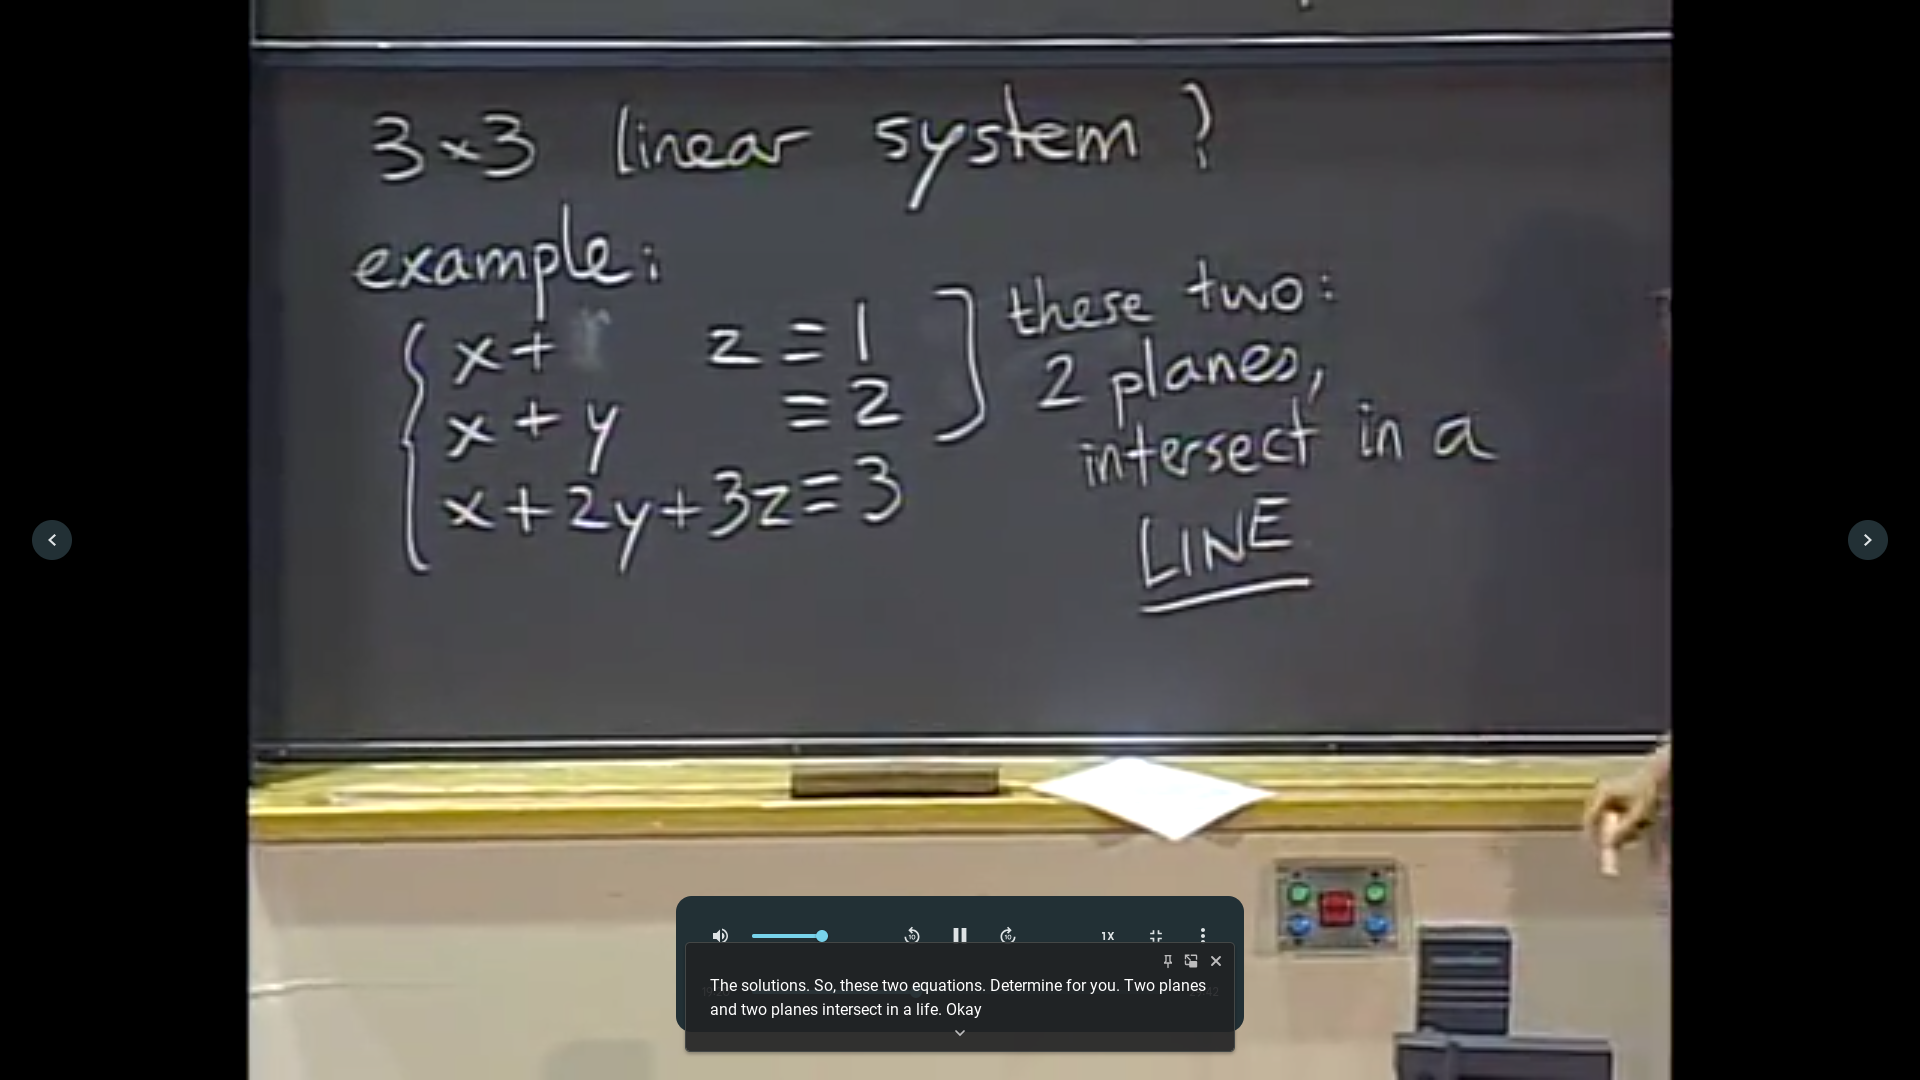 3×3 linear system ?
example:
x + z = 1
x + y = 2
x + 2y + 3z = 3
these two:
2 planes,
intersect in a
LINE
10
10
1X
The solutions. So, these two equations. Determine for you. Two planes
and two planes intersect in a life. Okay